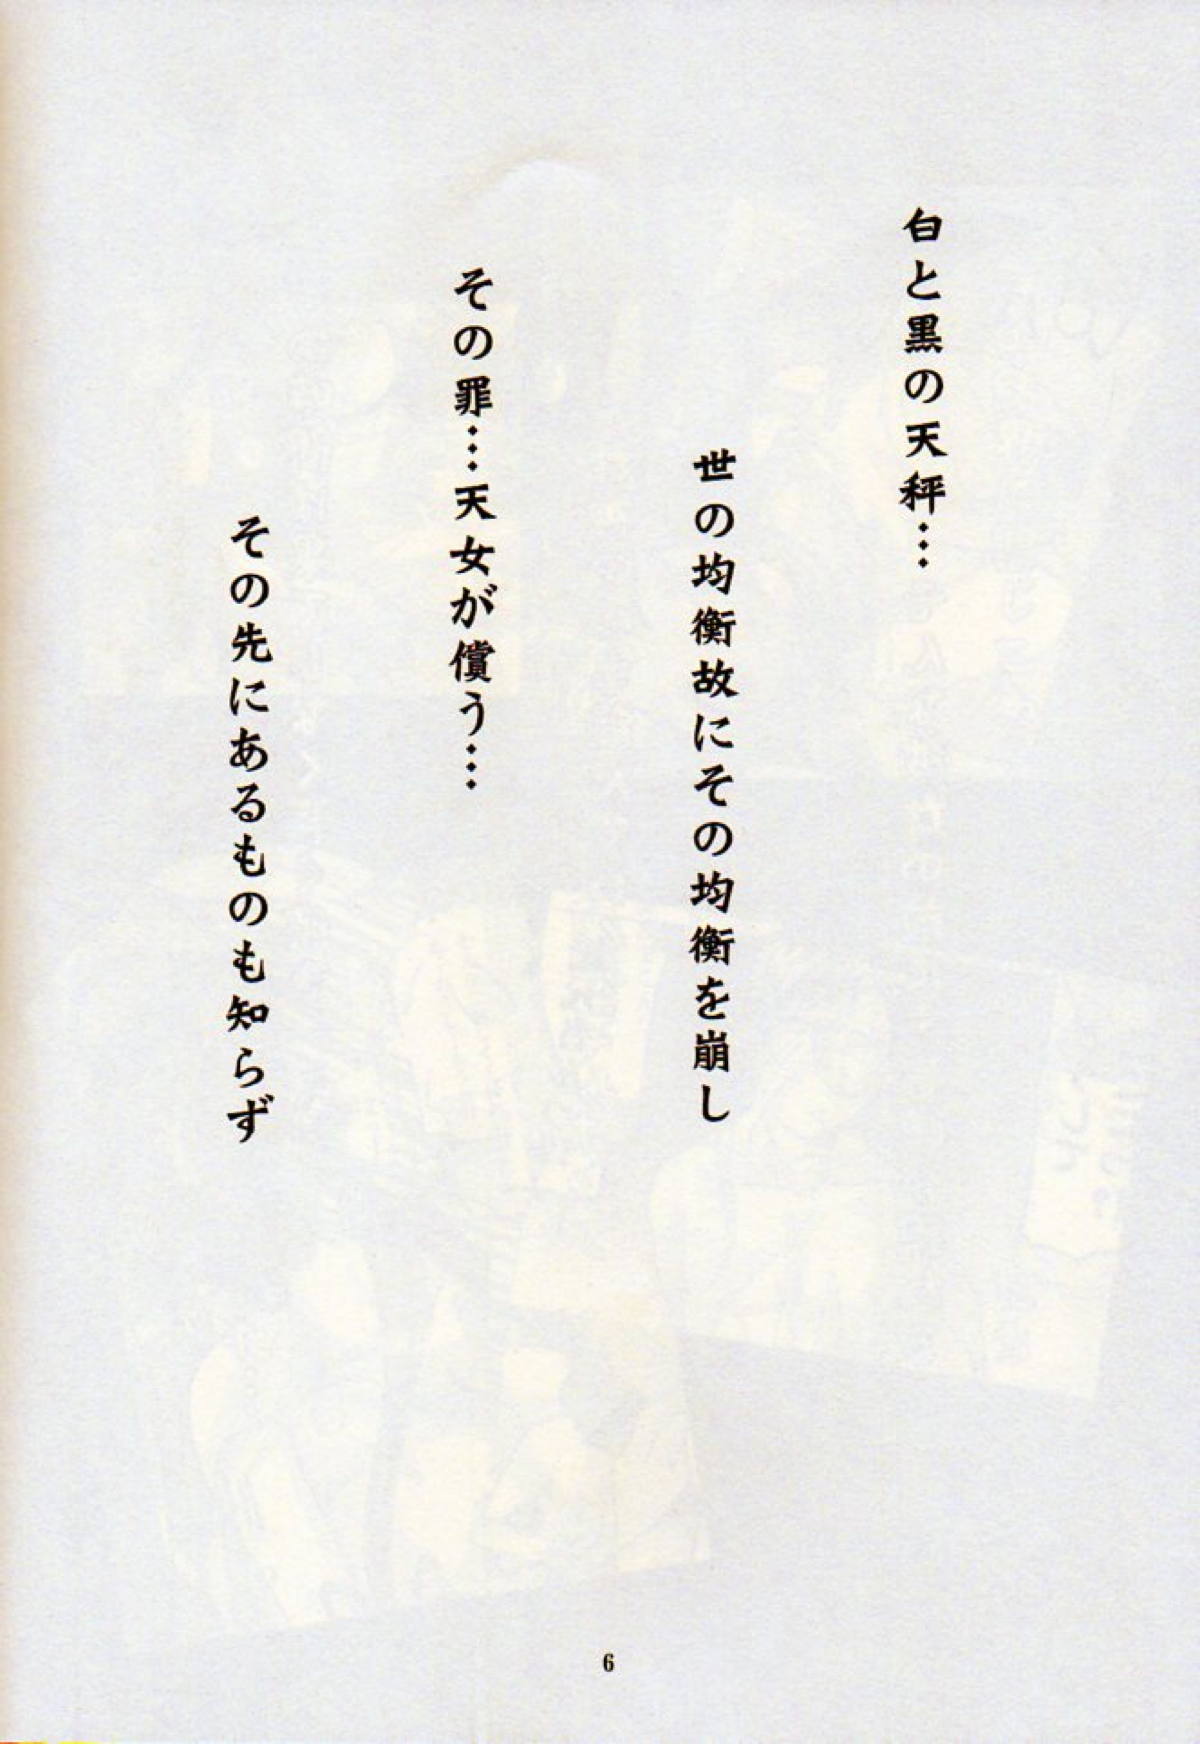 白と黒の天秤…
世の均衡故にその均衡を崩し
その罪…天女が償う…
その先にあるものも知らず
6